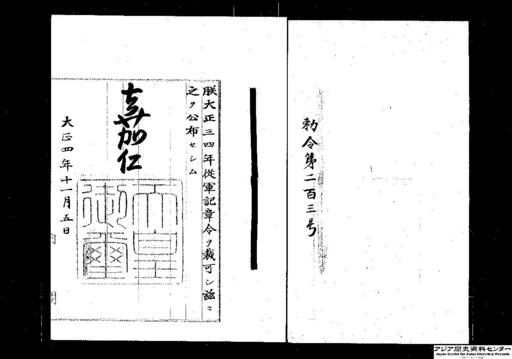 勅令第二百三号
朕大正三四年従軍記章令ヲ裁可シ茲ニ
之ヲ公布セシム
嘉仁
天皇
御璽
大正四年十一月五日
アジア歴史資料センター
Japan Center for Asian Historical Records